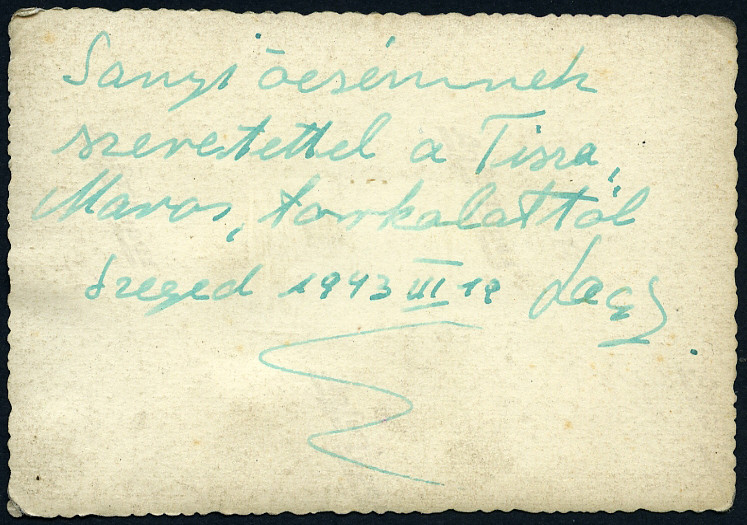 Sanyi öcsémnek
szeretettel a Tisza,
Maros, torkolattól
Szeged 1943 III 19